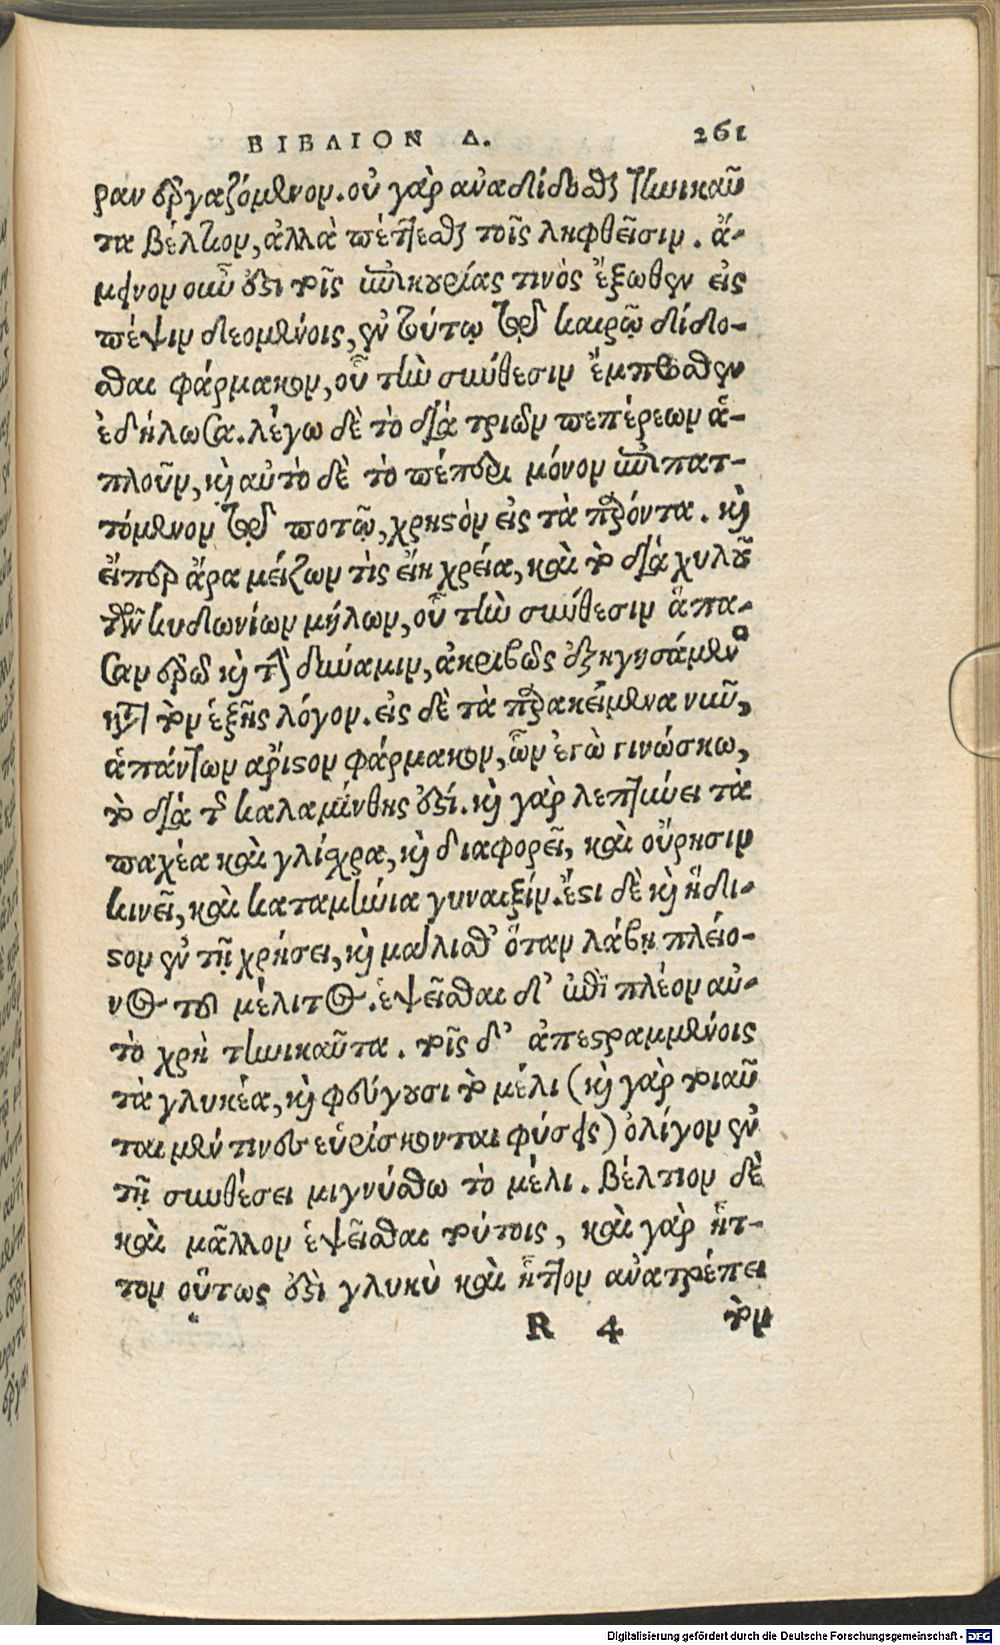 ΒΙΒΛΙΟΝ Δ. 261
ραν ἐργαζόμενον. οὐ γὰρ ἀναδίδοσθαι τηνικαῦ
τα βέλτιον, ἀλλὰ πέττεσθαι τοῖς ληφθεῖσιν. ἄ-
μεινον οὖν ἐστι τοῖς ἐπικουρίας τινὸς ἔξωθεν εἰς
πέψιν δεομένοις, ἐν τούτῳ τῷ καιρῷ δίδο-
σθαι φάρμακον, οὗ τὴν σύνθεσιν ἔμπροσθεν
ἐδήλωσα. λέγω δὲ τὸ διὰ τριῶν πεπέρεων ἁ-
πλοῦν, καὶ αὐτὸ δὲ τὸ πέπερι μόνον ἐπιπατ-
τόμενον τῷ ποτῷ, χρηστὸν εἰς τὰ παρόντα. καὶ
εἴπερ ἄρα μείζων τὶς εἴη χρεία, καὶ τὸ διὰ χυλοῦ
τῶν κυδωνίων μήλων, οὗ τὴν σύνθεσιν ἅπα-
σαν ἐρῶ καὶ τὴν δύναμιν, ἀκριβῶς ἐξηγησάμενος
κατὰ τὸν ἑξῆς λόγον. εἰς δὲ τὰ παρακείμενα νῦν,
ἁπάντων ἄριστον φάρμακον, ὧν ἐγὼ γινώσκω,
τὸ διὰ τῆς καλαμίνθης ἐστί. καὶ γὰρ λεπτύνει τὰ
παχέα καὶ γλίσχρα, καὶ διαφορεῖ, καὶ οὔρησιν
κινεῖ, καὶ καταμήνια γυναιξίν. ἔστι δὲ καὶ ἥδι-
στον ἐν τῇ χρήσει, καὶ μάλισθ' ὅταν λάβῃ πλείο-
νος τοῦ μέλιτος. ἑψεῖσθαι δ' ἐπὶ πλέον αὐ-
τὸ χρὴ τηνικαῦτα. τοῖς δ' ἀπεστραμμένοις
τὰ γλυκέα, καὶ φεύγουσι τὸ μέλι (καὶ γὰρ τοιαῦ
ται μέν τινες εὑρίσκονται φύσεις) ὀλίγον ἐν
τῇ συνθέσει μιγνύσθω τὸ μέλι. βέλτιον δὲ
καὶ μᾶλλον ἑψεῖσθαι τούτοις, καὶ γὰρ ἧτ-
τον οὕτως ἐστὶ γλυκὺ καὶ ἧττον ἀνατρέπει
R 4 τὸν
Digitalisierung gefördert durch die Deutsche Forschungsgemeinschaft - DFG